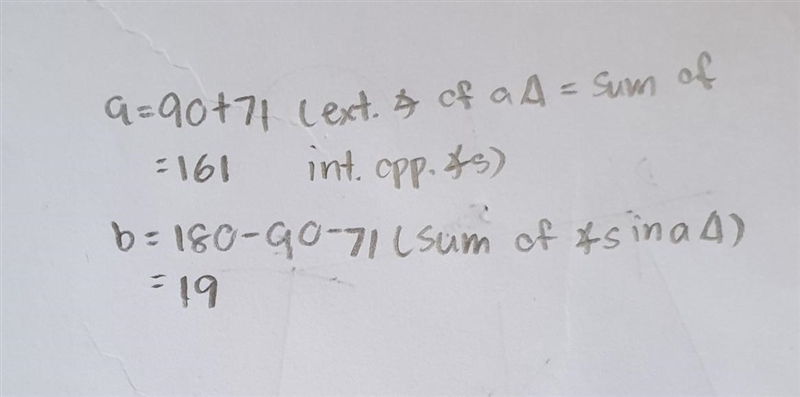 a=90+71 (ext. ∡ of a Δ = sum of
=161 int. opp. ∡s)
b=180-90-71 (sum of ∡s in a Δ)
=19